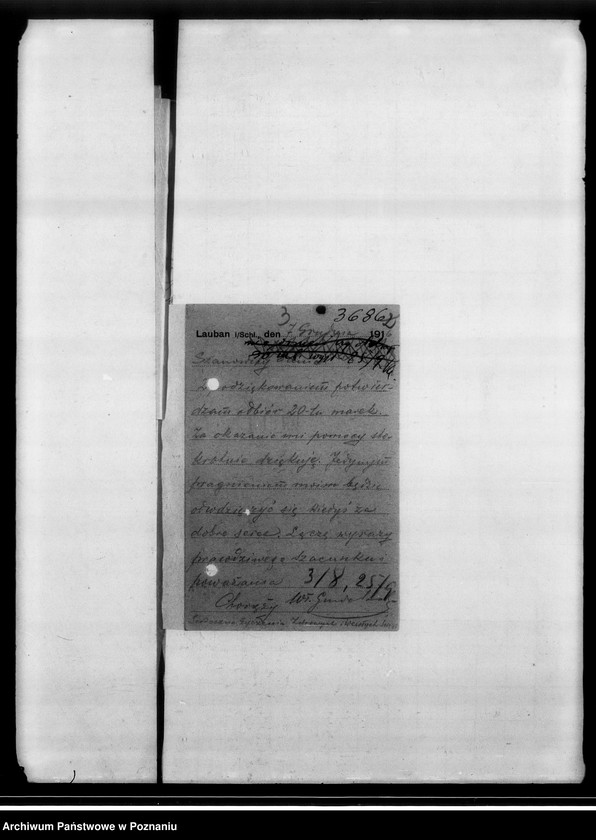 3 36862
Lauban i/Schl., den 7 Grudnia 1916
Szanowny
z podziękowaniem potwier-
dzam odbiór 20-tu marek.
Za okazanie mi pomocy ste-
krotnie dziękuję. Jedynym
pragnieniem moim będzie
odwdzięczyć się kiedyś za
dobre serce. Łączę wyrazy
prawdziwego szacunku i
poważania 3/8, 25/
Chorąży Wł.
Archiwum Państwowe w Poznaniu